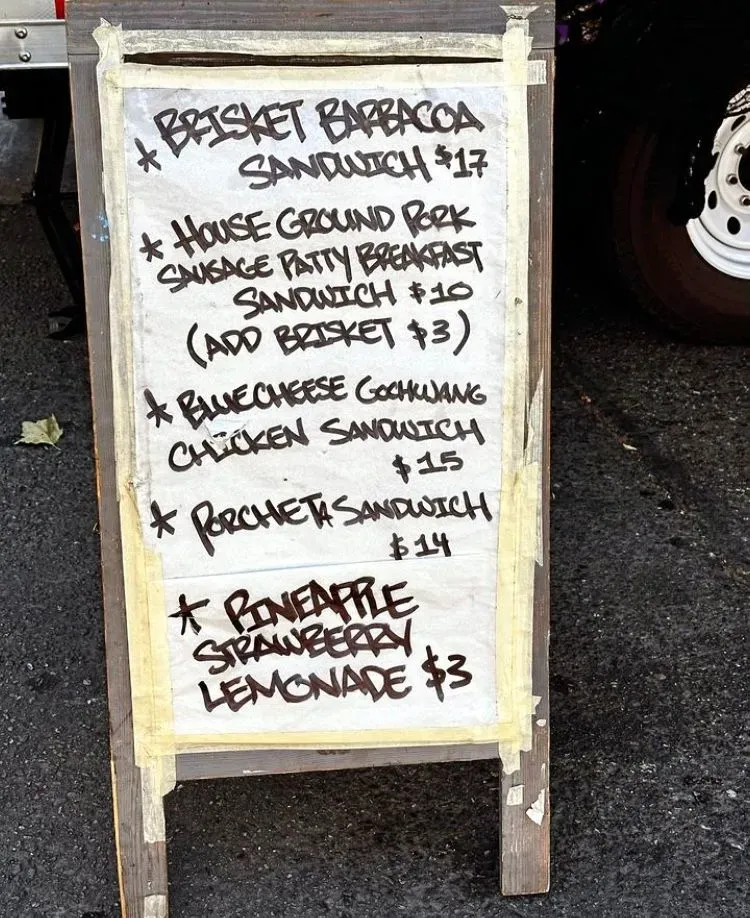 * BRISKET BARBACOA
SANDWICH $17
* HOUSE GROUND PORK
SAUSAGE PATTY BREAKFAST
SANDWICH $10
(ADD BRISKET $3)
* BLUECHEESE GOCHUJANG
CHICKEN SANDWICH
$15
* PORCHETA SANDWICH
$14
* PINEAPPLE
STRAWBERRY
LEMONADE $3